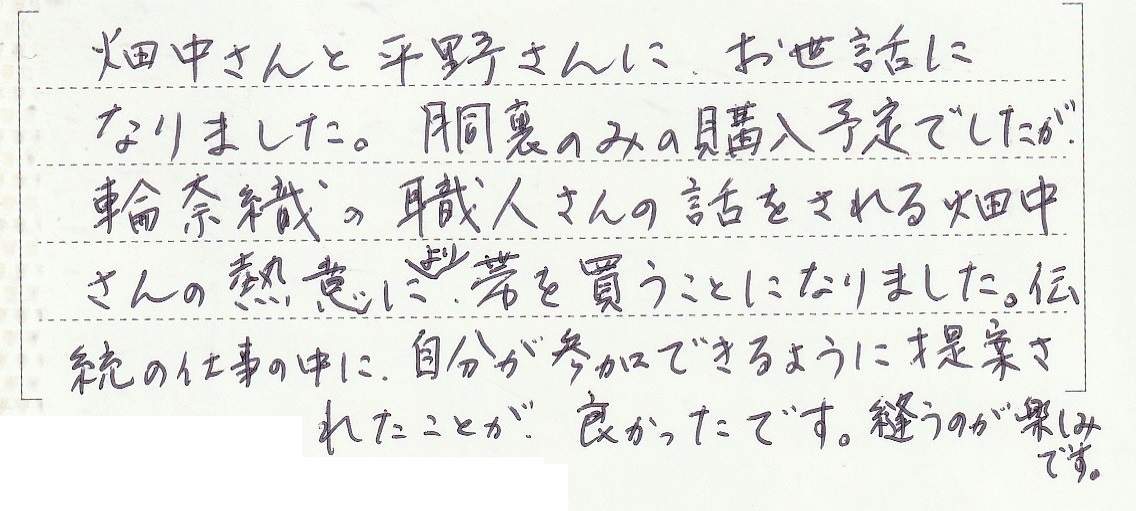 畑中さんと平野さんに、お世話に
なりました。胴裏のみの購入予定でしたが、
輪奈織の職人さんの話をされる畑中
さんの熱意により、帯を買うことになりました。伝
統の仕事の中に、自分が参加できるように提案さ
れたことが、良かったです。縫うのが楽しみ
です。